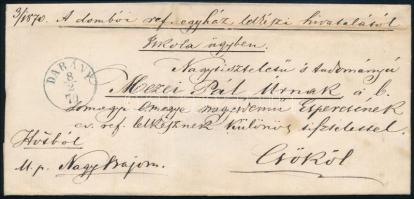 3/1870. A dombói ref. egyház lelkészi hivatalától
Iskola ügyben.
DARÁNY
8/2
70
Nagytiszteletű s tudományú
Mezei Pál Úrnak a b.
somogyi egymegye nagyérdemű Esperesének
ev. ref. lelkésznek különös tisztelettel.
Hivatalból
u. p. Nagy Bajom.
Csököl